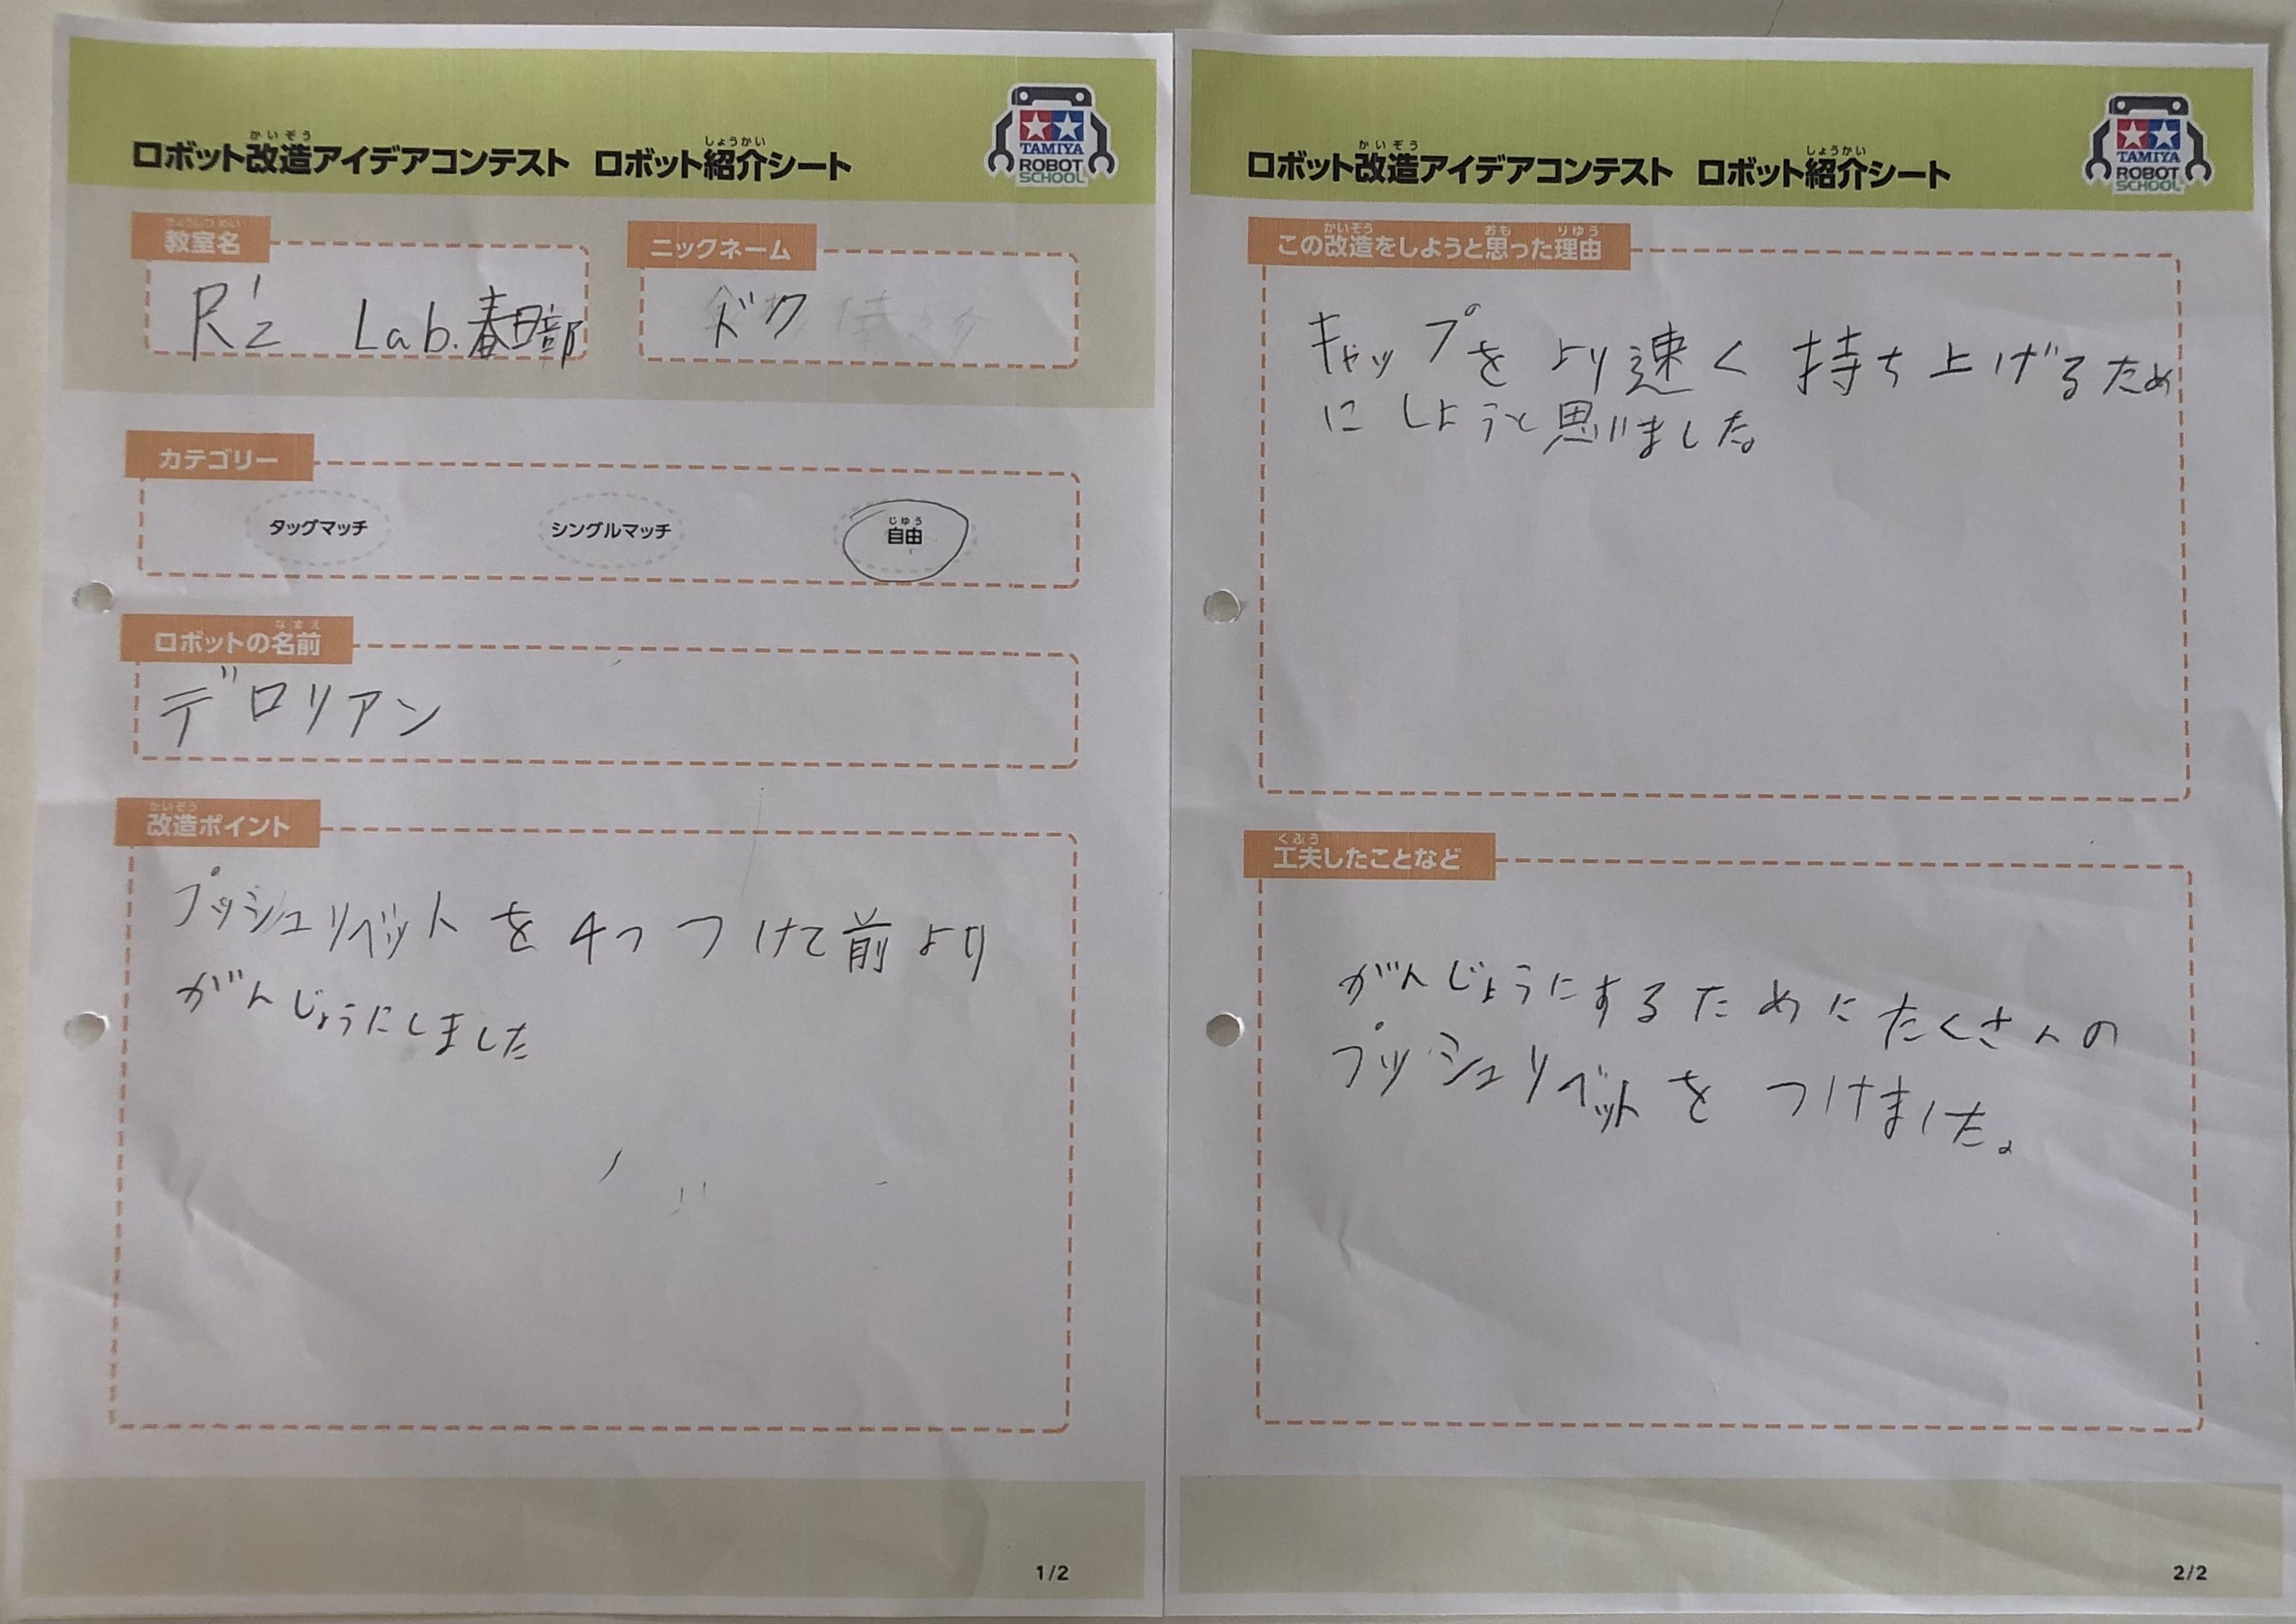 ロボット改造アイデアコンテスト ロボット紹介シート
かいぞう しょうかい
TAMIYA
ROBOT
SCHOOL
教室名
きょうしつめい
R'z Lab.春日部
ニックネーム
ドク
カテゴリー
タッグマッチ
シングルマッチ
じゆう
自由
なまえ
ロボットの名前
デロリアン
かいぞう
改造ポイント
プッシュリベットを4つつけて前より
がんじょうにしました
1/2
かいぞう しょうかい
ロボット改造アイデアコンテスト ロボット紹介シート
TAMIYA
ROBOT
SCHOOL
かいぞう おも りゆう
この改造をしようと思った理由
キャップをより速く持ち上げるため
にしようと思いました。
くふう
工夫したことなど
がんじょうにするためにたくさんの
プッシュリベットをつけました。
2/2